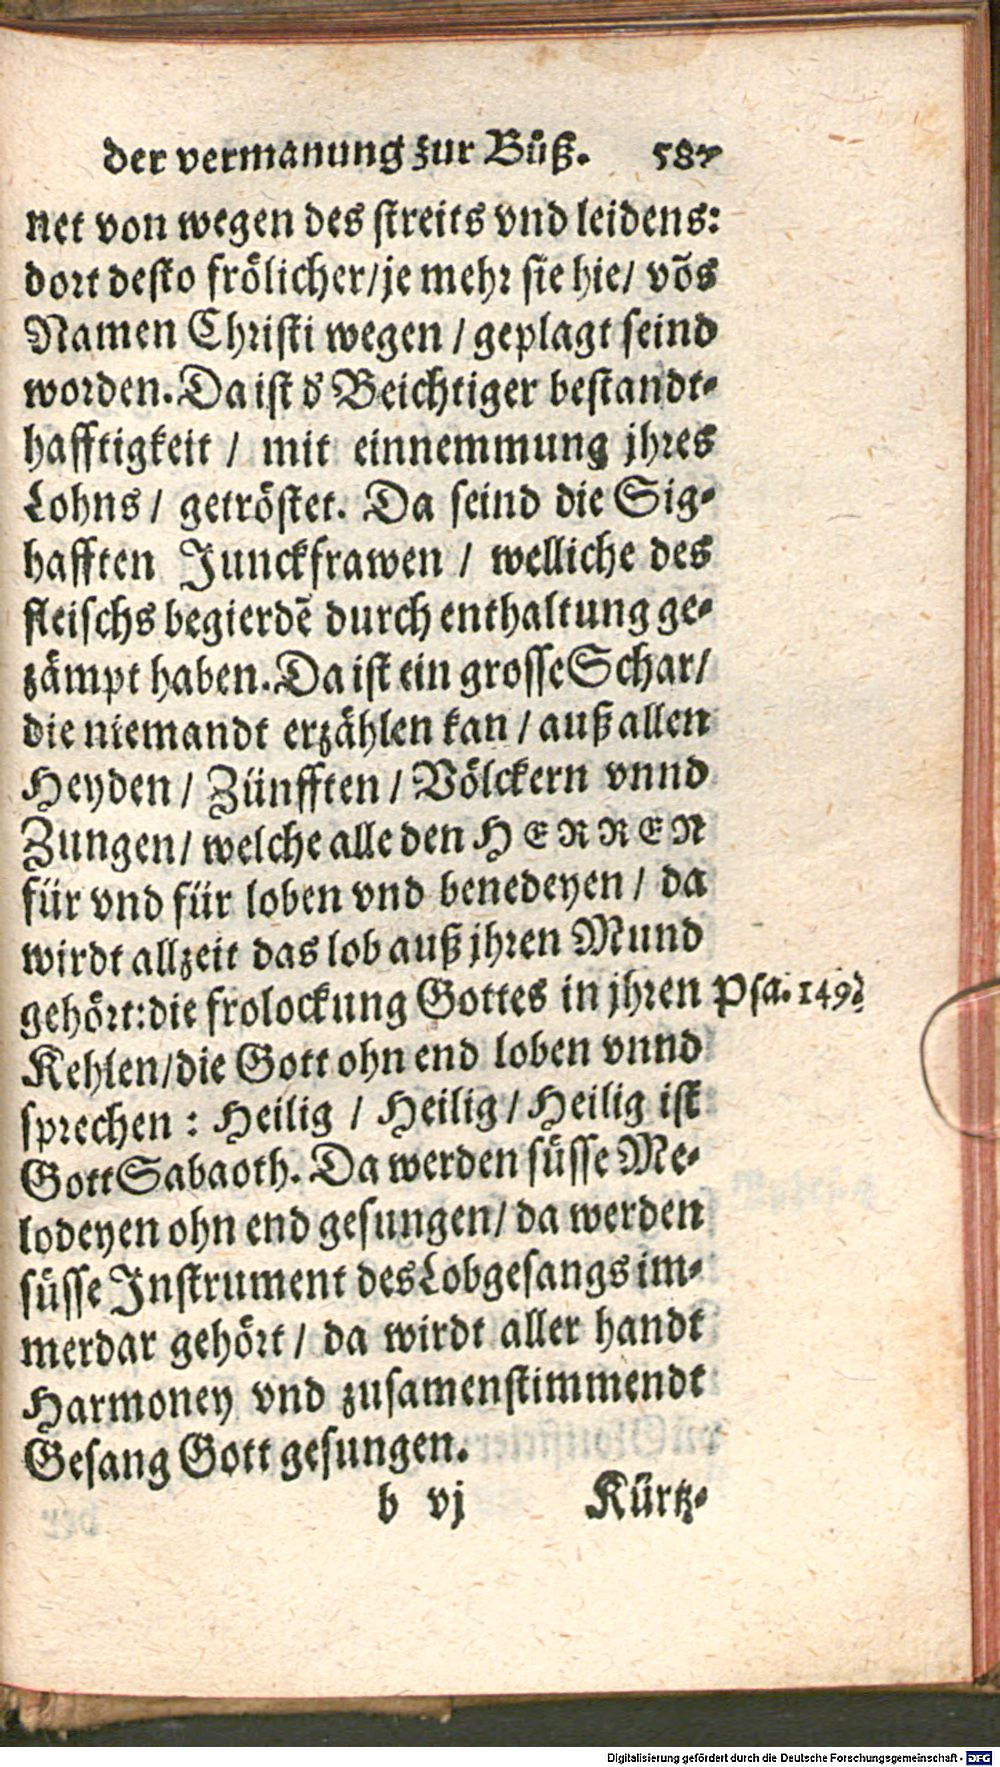 der vermanung zur Bůß. 587
net von wegen des streits vnd leidens:
dort desto frölicher/je mehr sie hie/ võs
Namen Christi wegen / geplagt seind
worden. Da ist d' Beichtiger bestandt-
hafftigkeit / mit einnemmung jhres
Lohns / getröstet. Da seind die Sig-
hafften Junckfrawen / welliche des
fleischs begierdẽ durch enthaltung ge-
zämpt haben. Da ist ein grosse Schar/
die niemandt erzählen kan / auß allen
Heyden / Zünfften / Völckern vnnd
Zungen / welche alle den HERREN
für vnd für loben vnd benedeyen / da
wirdt allzeit das lob auß jhren Mund
gehört: die frolockung Gottes in jhren Psa. 149.
Kehlen/die Gott ohn end loben vnnd
sprechen : Heilig / Heilig / Heilig ist
Gott Sabaoth. Da werden sůsse Me-
lodeyen ohn end gesungen/ da werden
sůsse Instrument des Lobgesangs im-
merdar gehört / da wirdt aller handt
Harmoney vnd zusamenstimmendt
Gesang Gott gesungen.
b vj Kürtz-
Digitalisierung gefördert durch die Deutsche Forschungsgemeinschaft - DFG